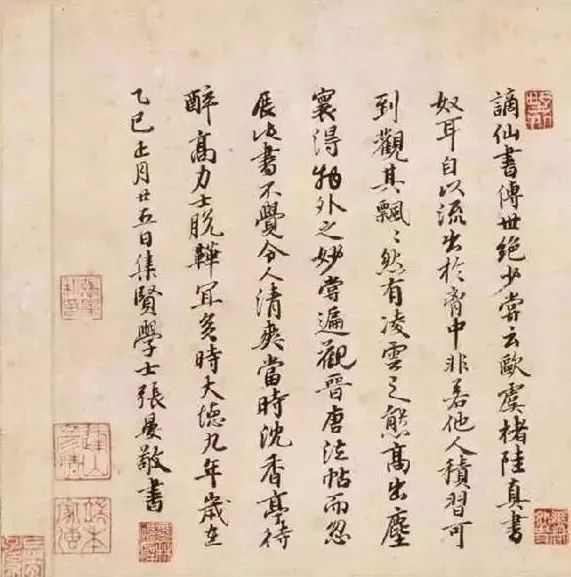 謫仙書傳世絕少嘗云歐虞褚陸真書
奴耳自以流出於胷中非若他人積習可
到觀其飄〻然有凌雲之態高出塵
寰得物外之妙嘗遍觀晉唐法帖而忽
展此書不覺令人清爽當時沈香亭待
醉高力士脫鞾宜矣時大德九年歲在
乙巳正月廿五日集賢學士張晏敬書